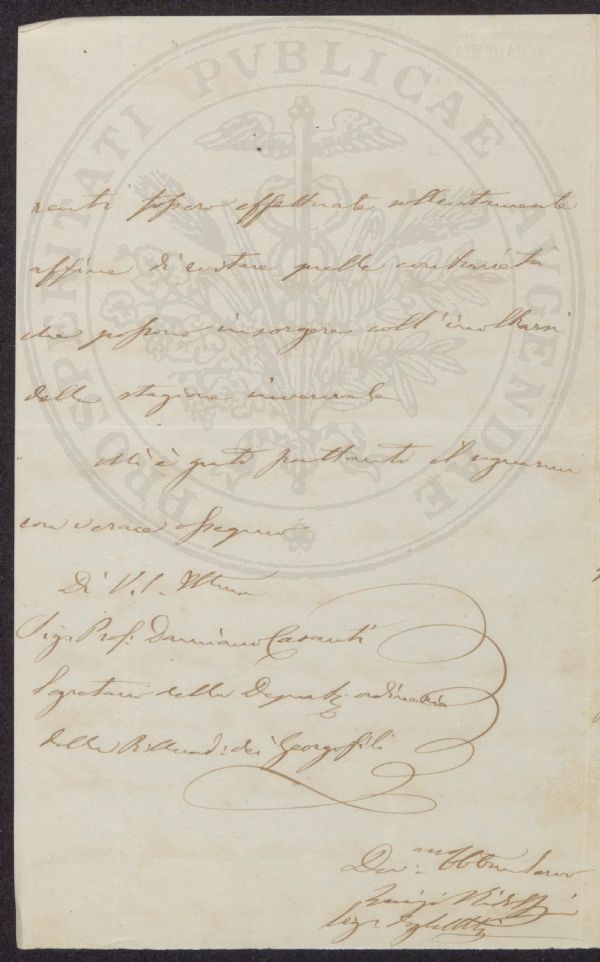 PROSPERITATI PVBLICAE AVGENDAE
renti possono effettuate sollecitamente
affine di evitare quelle contrarietà
che possono insorgere coll'inoltrarsi
della stagione invernale
Mi è grato frattanto di segnarmi
con verace ossequio
Di V. S. Illma
Sig. Prof. Damiano Casanti
Segretario della Deputaz. ordinaria
della R. Accad. dei Georgofili
Dev.mo Obb. Servo
Luigi Ridolfi
Seg.